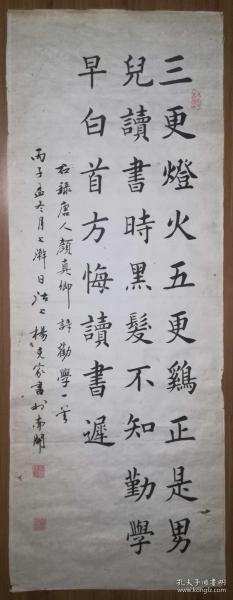 三更燈火五更鷄正是男
兒讀書時黑髮不知勤學
早白首方悔讀書遲
右錄唐人顏真卿詩勸學一首
丙子孟冬月上澣日津七楊克家書於南開
孔夫子旧书网
www.kongfz.com